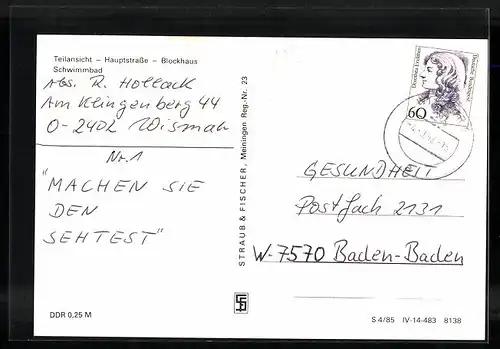 Teilansicht – Hauptstraße – Blockhaus
Schwimmbad
Abs. R. Hollack
Am Klingenberg 44
O-2402 Wismar
Nr. 1
"MACHEN SIE
DEN
SEHTEST"
DDR 0,25 M
STRAUB & FISCHER, Meiningen Reg.-Nr. 23
60
Deutsche Bundespost
GESUNDHEIT
Postfach 2131
W-7570 Baden-Baden
S 4/85 IV-14-483 8138